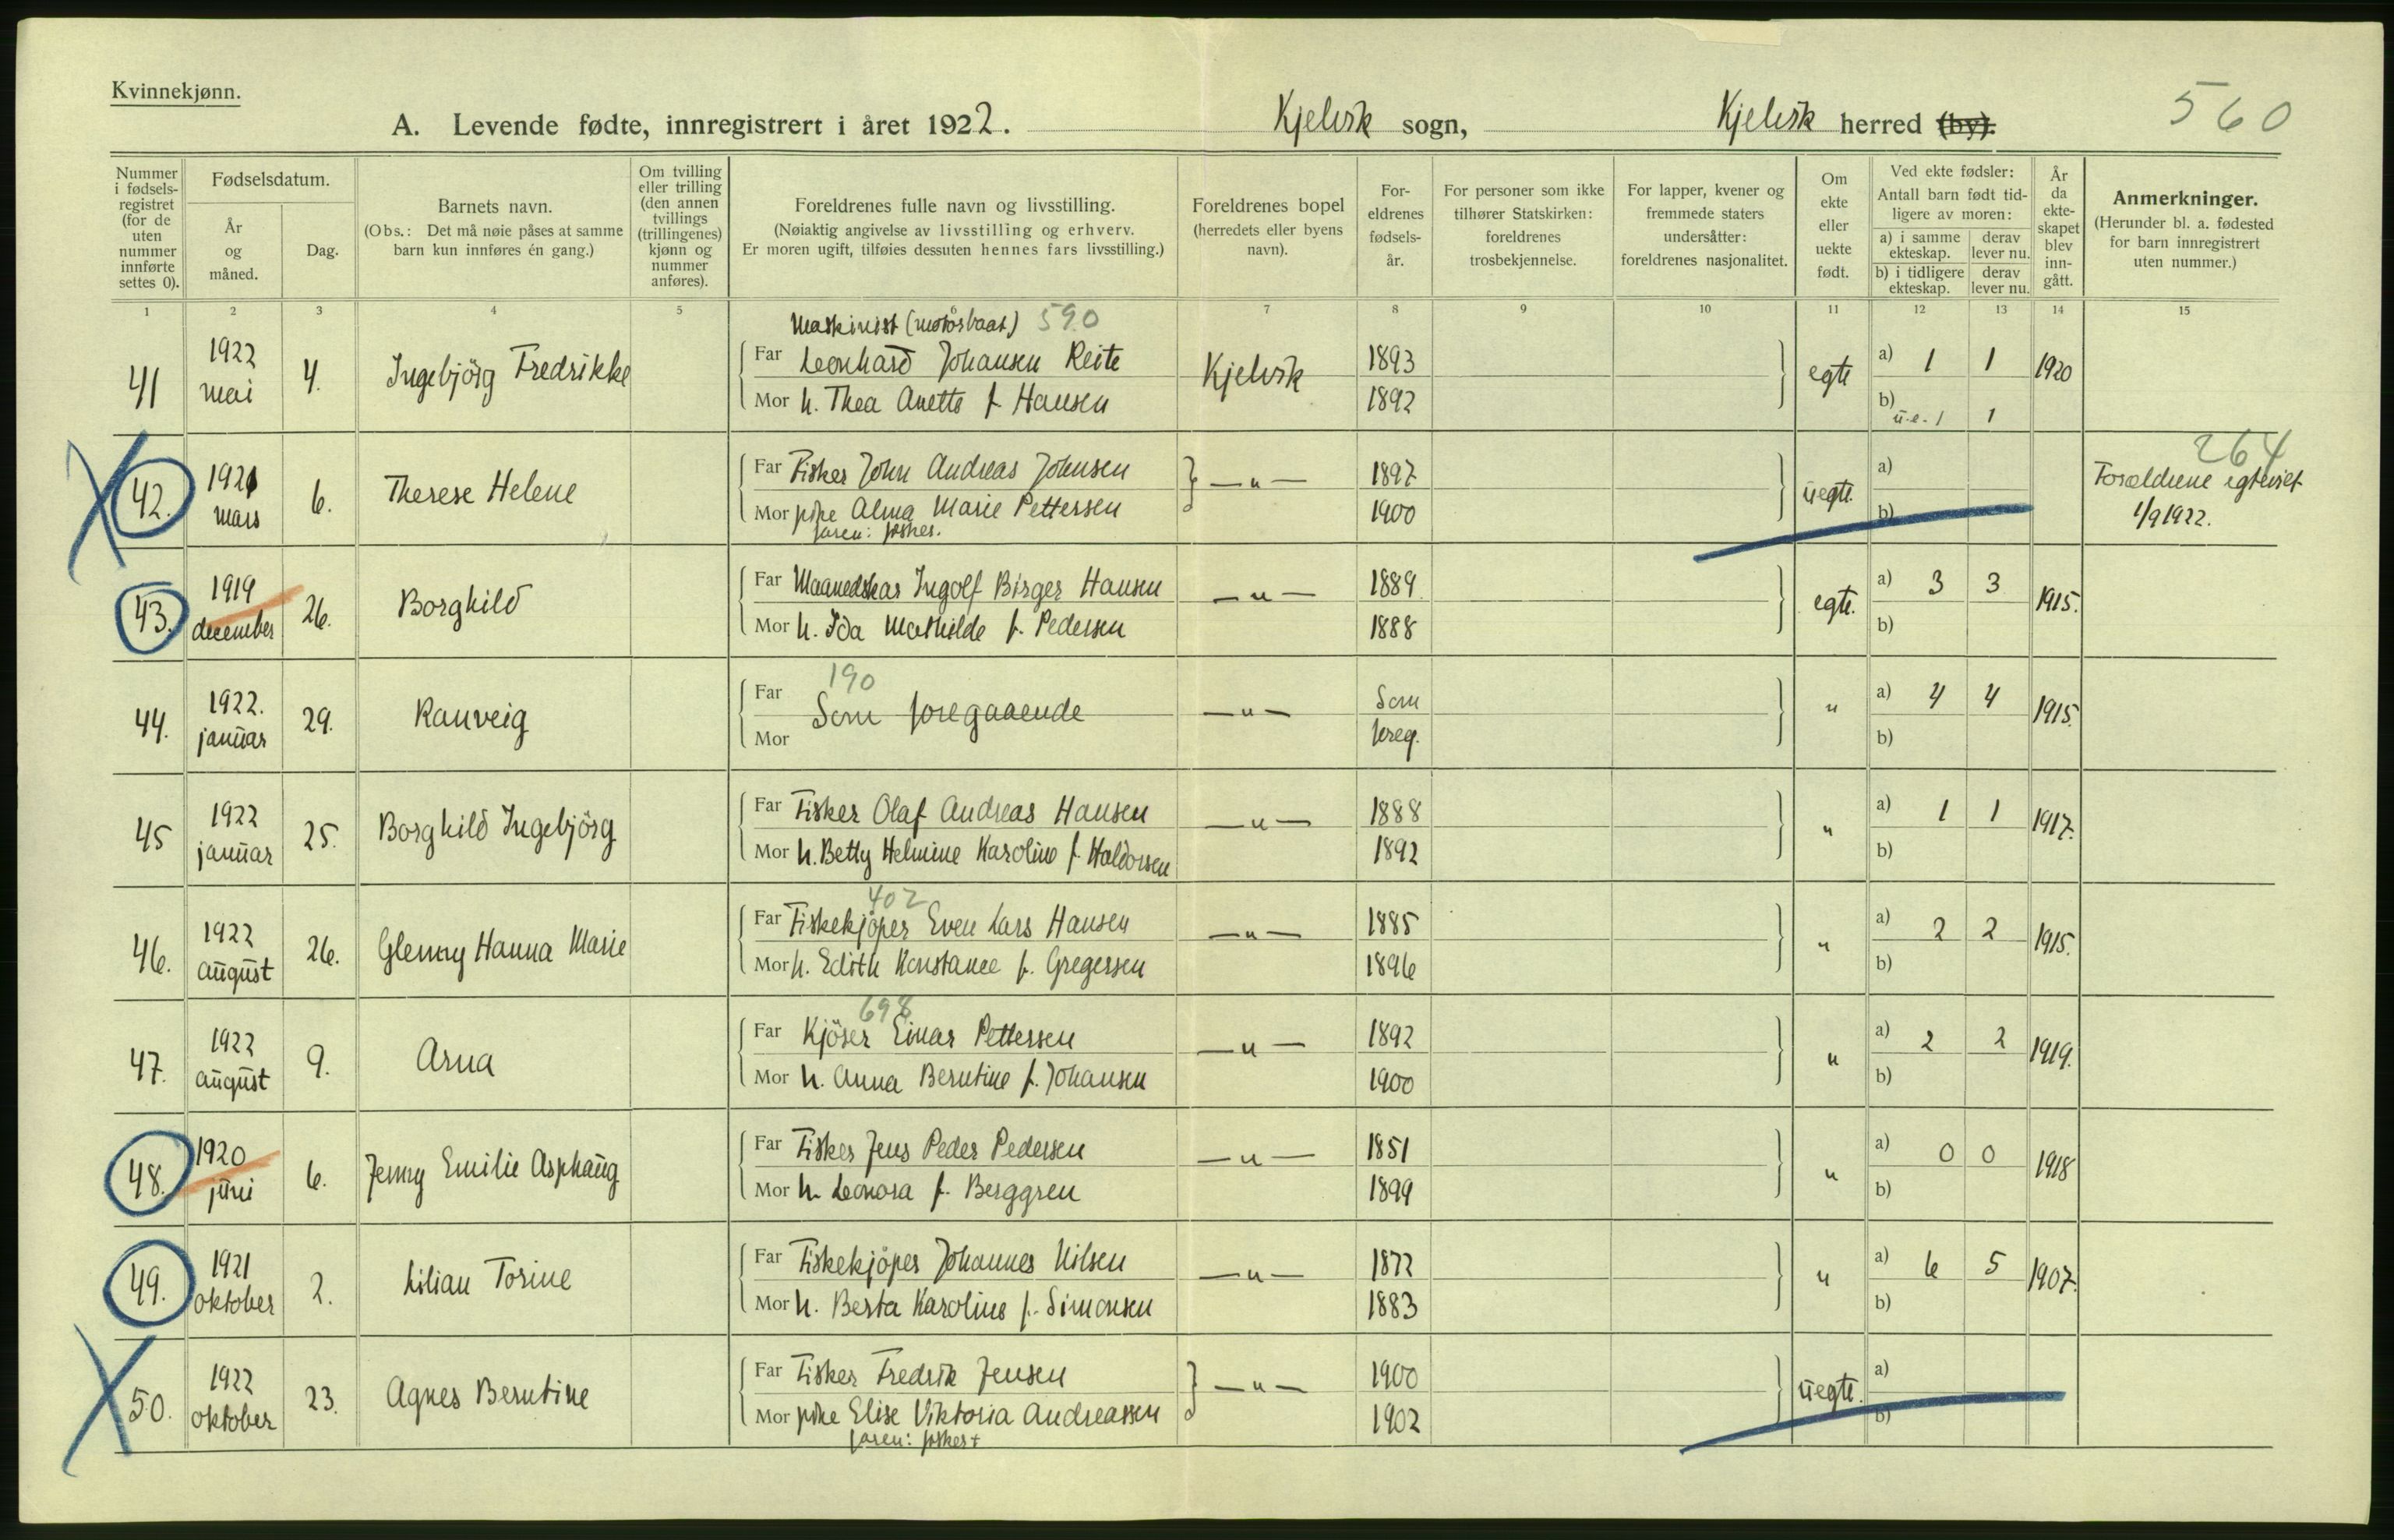 Kvinnekjønn.
A. Levende fødte, innregistrert i året 1922. Kjelvik sogn, Kjelvik herred (by). 560
Nummer i fødselsregistret (for de uten nummer innførte settes 0).
Fødselsdatum.
År og måned.
Dag.
Barnets navn.
(Obs.: Det må nøie påses at samme barn kun innføres én gang.)
Om tvilling eller trilling (den annen tvillings (trillingenes) kjønn og nummer anføres).
Foreldrenes fulle navn og livsstilling.
(Nøiaktig angivelse av livsstilling og erhverv.
Er moren ugift, tilføies dessuten hennes fars livsstilling.)
Foreldrenes bopel (herredets eller byens navn).
Foreldrenes fødselsår.
For personer som ikke tilhører Statskirken: foreldrenes trosbekjennelse.
For lapper, kvener og fremmede staters undersåtter: foreldrenes nasjonalitet.
Om ekte eller uekte født.
Ved ekte fødsler:
Antall barn født tidligere av moren:
a) i samme ekteskap. derav lever nu.
b) i tidligere ekteskap. derav lever nu.
År da ekteskapet blev inngått.
Anmerkninger.
(Herunder bl. a. fødested for barn innregistrert uten nummer.)
1 2 3 4 5 7 8 9 10 11 12 13 14 15
Maskinist (motorbaat) 590
41 1922 mai 4. Ingebjörg Fredrikke Far Leonhard Johansen Reite Kjelvik 1893 egte a) 1 1 1920
Mor h. Thea Anette f. Hansen 1892 b) u.e. 1 1
264
42. 1921 mars 6. Therese Helene Far Fisker John Andreas Johnsen —"— 1897 uegte. a) Forældrene egteviet
Mor pike Alma Marie Pettersen 1900 b) 1/9 1922.
faren: fisker.
43. 1919 december 26. Borghild Far Maanedskar Ingolf Birger Hansen —"— 1889 egte. a) 3 3 1915.
Mor h. Ida Mathilde f. Pedersen 1888 b)
190
44. 1922. januar 29. Ranveig Far Mor Som foregaaende —"— Som foreg. " a) 4 4 1915.
b)
45 1922 januar 25. Borghild Ingebjörg Far Fisker Olaf Andreas Hansen —"— 1888 " a) 1 1 1917.
Mor h. Betty Helmine Karoline f. Haldorsen 1892 b)
402
46. 1922 august 26. Glenny Hanna Marie Far Fiskekjöper Even Lars Hansen —"— 1885 " a) 2 2 1915.
Mor h. Edith Konstance f. Gregersen 1896 b)
698
47. 1922 august 9. Arna Far Kjöser Einar Pettersen —"— 1892 " a) 2 2 1919.
Mor h. Anna Berntine f. Johansen 1900 b)
48. 1920 juni 6. Jenny Emilie Asphaug Far Fisker Jens Peder Pedersen —"— 1851 " a) 0 0 1918
Mor h. Leonora f. Berggren 1899 b)
49. 1921 oktober 2. Lilian Torine Far Fiskekjöper Johannes Nilsen —"— 1872 " a) 6 5 1907.
Mor h. Berta Karoline f. Simonsen 1883 b)
50. 1922 oktober 23. Agnes Berntine Far Fisker Fredrik Jensen —"— 1900 uegte. a)
Mor pike Elise Viktoria Andreassen 1902 b)
faren: fisker +